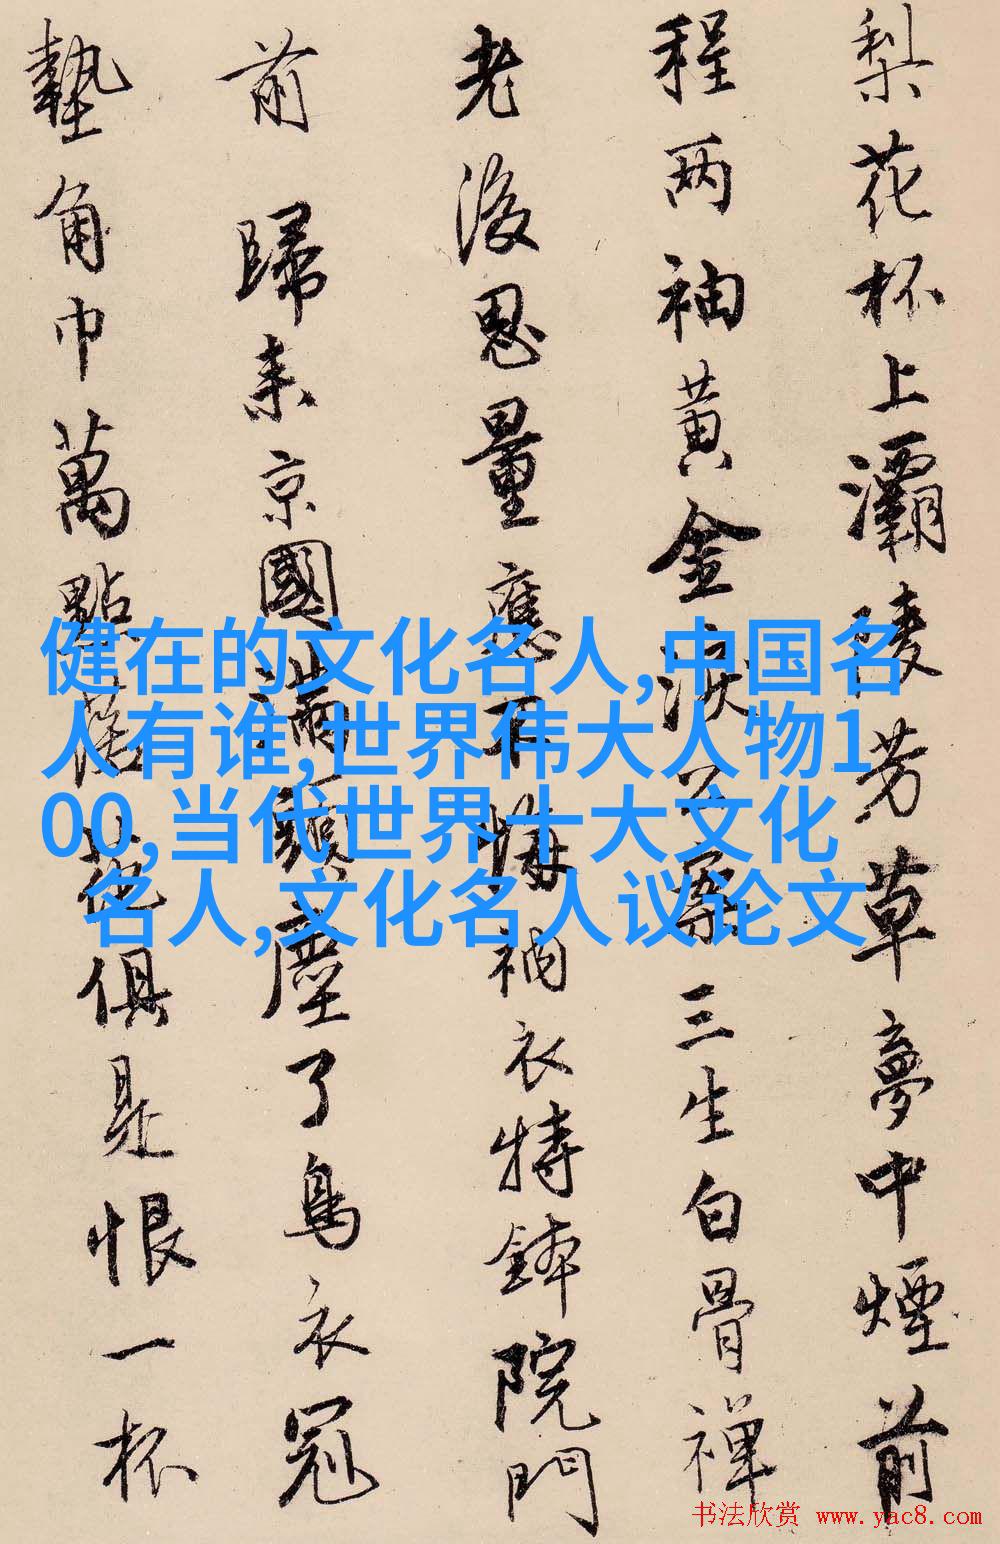 梨花杯上灞陵芳草夢中煙前
程两袖黄金淚公案三生白骨禪
老後思量應不悔衲衣持鉢院門
前 歸来京國満頭塵了烏衣冠
墊角巾萬點落花俱是恨一杯
健在的文化名人,中国名
人有谁,世界伟大人物1
00,当代世界十大文化
名人,文化名人议论文
书法欣赏 www.yac8.com